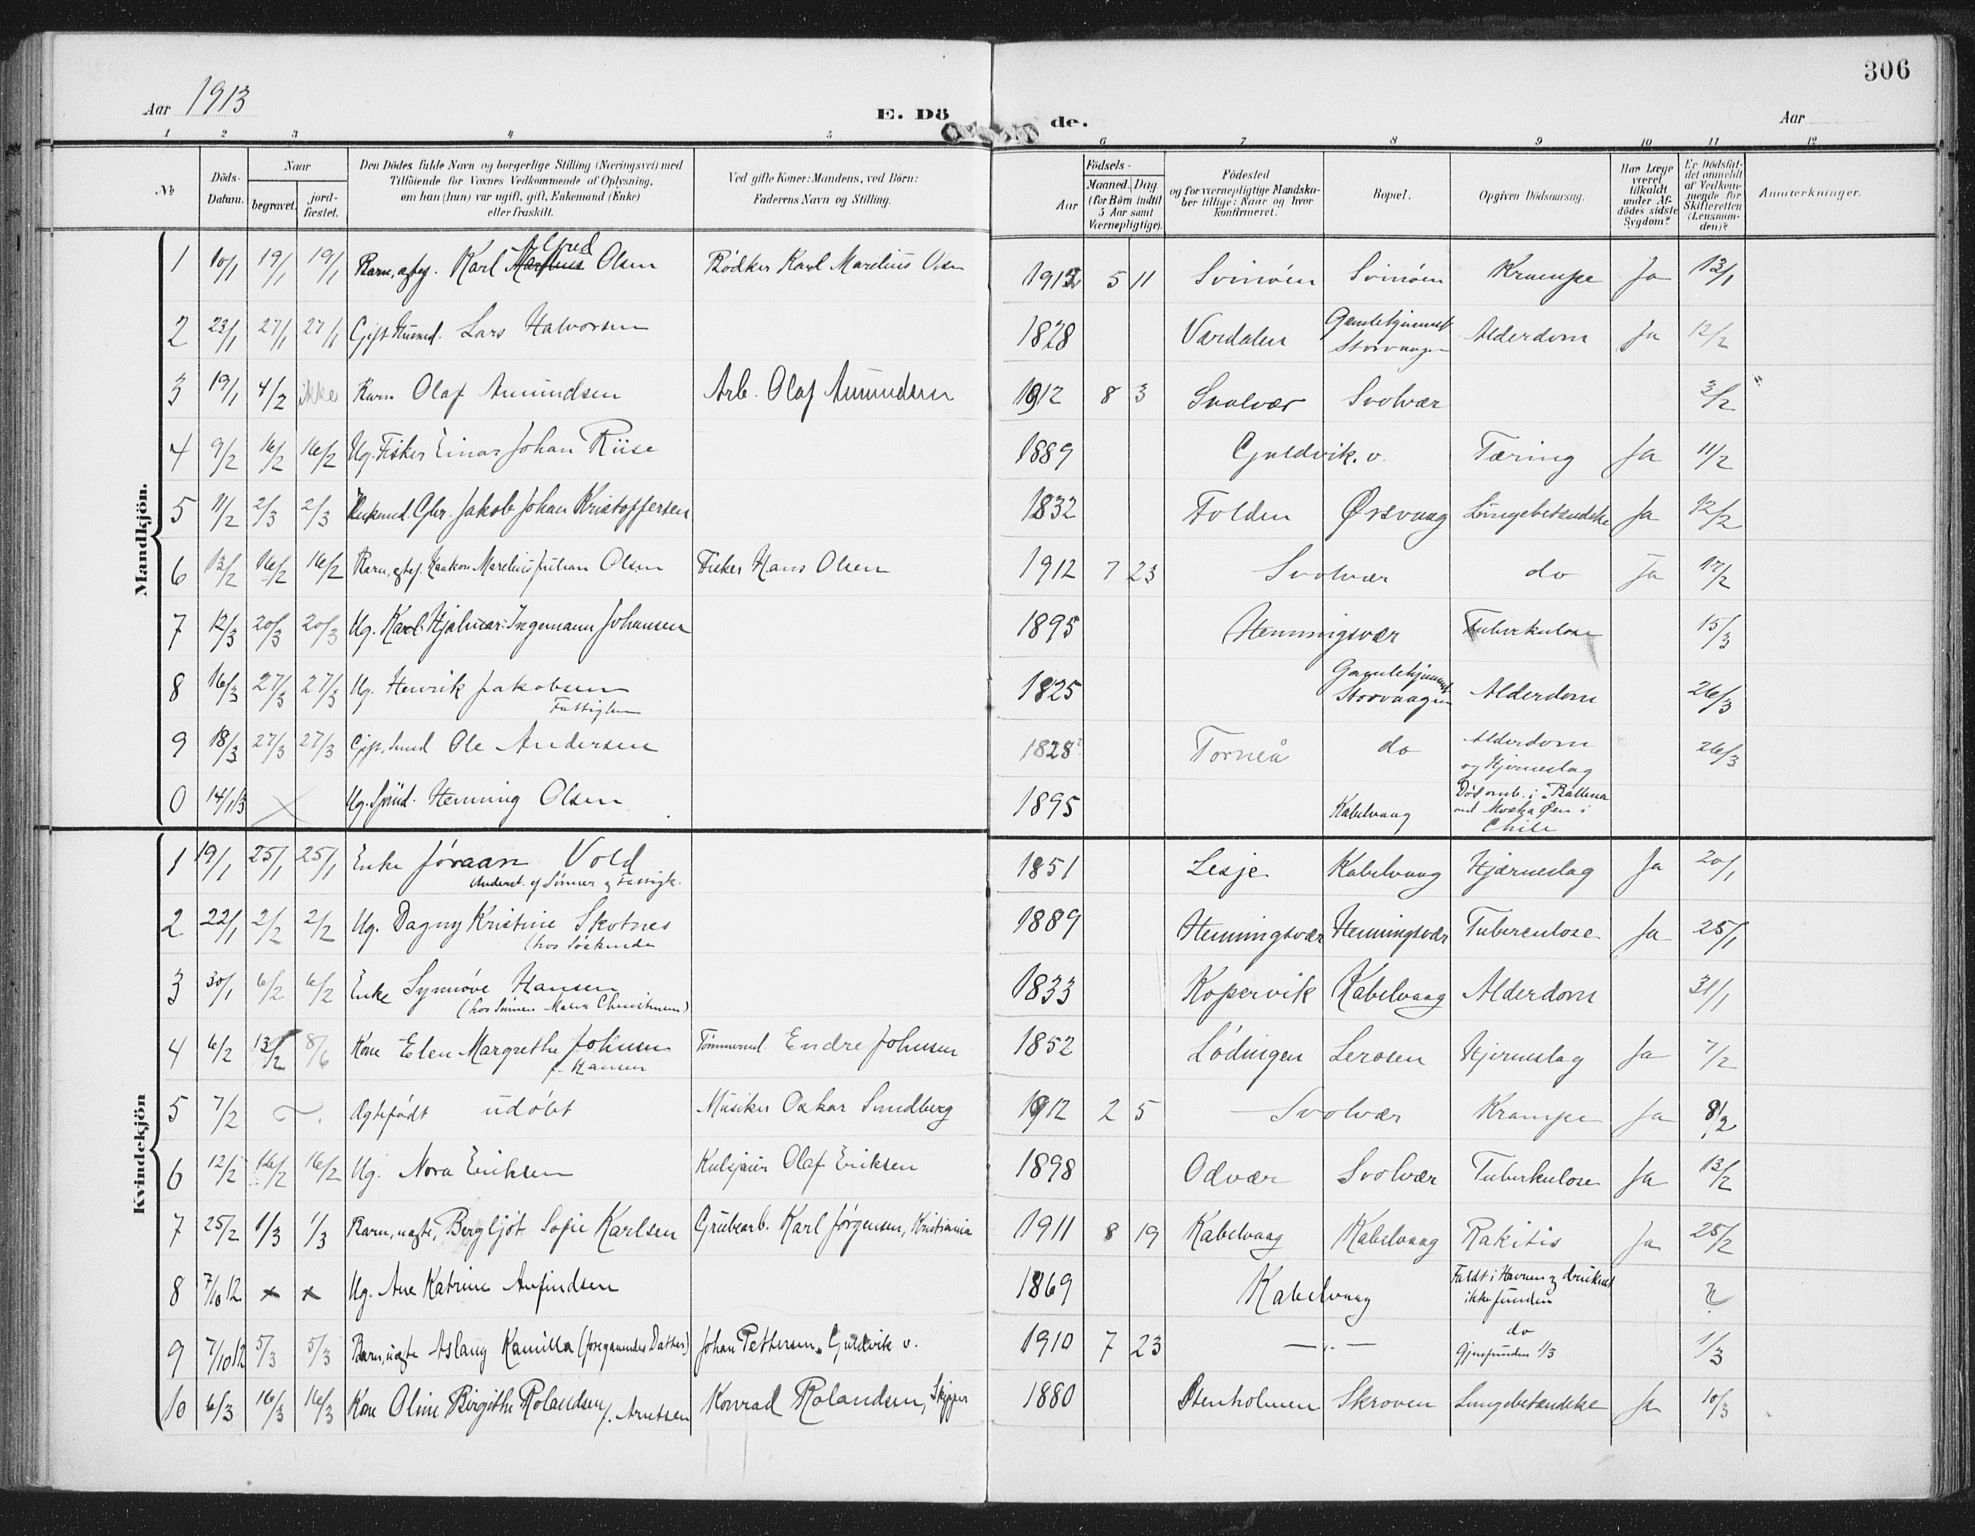 306
Aar 1913
E. Dö de.
Aar
1 2 3 4 5 6 7 8 9 10 11 12
№
Döds-Datum.
Naar
begravet.
jord-fæstet.
Den Dödes fulde Navn og borgerlige Stilling (Næringsvei) med Tilföiende for Voxnes Vedkommende af Oplysning, om han (hun) var ugift, gift, Enkemand (Enke) eller fraskilt.
Ved gifte Koner: Mandens, ved Börn: Faderens Navn og Stilling.
Födsels-
Aar
Maaned. Dag.
(for Börn indtil 5 Aar samt Værnepligtige).
Födested og for værnepligtige Mandskaber tillige: Naar og hvor konfirmeret.
Bopæl.
Opgiven Dödsaarsag.
Har Læge været tilkaldt under Afdödes sidste Sygdom?
Er Dödsfaldet anmeldt af Vedkommende for Skifteretten (Lensmanden)?
Anmærkninger.
Mandkjön.
1 10/1 19/1 19/1 Barn, ægtef. Karl Alfred Olsen Bødker Karl Marelius Olsen 1912 5 11 Svinøen Svinøen Krampe Ja 13/1
2 23/1 27/1 27/1 Gift Husmd. Lars Halvorsen 1828 Værdalen Gamlehjemmet Storvaagen Alderdom Ja 12/2
3 19/1 4/2 ikke Barn Olaf Amundsen Arb. Olaf Amundsen 1912 8 3 Svolvær Svolvær 3/2
4 9/2 16/2 16/2 Ug. Fisker Einar Johan Riise 1889 Guldvik. v. Tæring Ja 11/2
5 11/2 2/3 2/3 Enkemd. Gbr. Jakob Johan Kristoffersen 1832 Folden Ørsvaag Lungebetændelse Ja 12/2
6 13/2 16/2 16/2 Barn, ægtef. Haakon Marelius Julian Olsen Fisker Hans Olsen 1912 7 23 Svolvær do Ja 17/2
7 12/3 20/3 20/3 Ug. Karl Hjalmar Ingemann Johansen 1895 Henningsvær Tuberkulose 15/3
8 16/3 27/3 27/3 Ug. Henrik Jakobsen 1825 Gamlehjemmet Storvaagen Alderdom 26/3
Fattiglem
9 18/3 27/3 27/3 Gift. Ole Andersen 1828? Torneå do Alderdom og Hjerneslag 26/3
0 14/1 13 × Ug. Sømd. Henning Olsen 1895 Kabelvaag Død omb. i Chile
Kvindekjön
1 19/1 25/1 25/1 Enke Jøraan Vold 1851 Lesje Kabelvaag Hjærneslag Ja 20/1
Underst. af Sønner og Fattigk.
2 22/1 2/2 2/2 Ug. Dagny Kristine Skotnes 1889 Henningsvær Henningsvær Tuberculose Ja 25/1
(hos Søskende
3 30/1 6/2 6/2 Enke Synnøve Hansen 1833 Kopervik Kabelvaag Alderdom 31/1
(hos Sønnen Maler Christensen)
4 6/2 13/2 8/6 Kone Elen Margrethe Johnsen Tømmermd. Endre Johnsen 1852 Lødingen Lerosen Hjerneslag Ja 7/2
f. Hansen
5 7/2 Ægtefødt udøbt Musiker Oskar Sundberg 1912 2 5 Svolvær Krampe Ja 8/2
6 12/2 16/2 16/2 Ug. Nora Eriksen Kulsjauer Olaf Eriksen 1898 Odvær Svolvær Tuberkulose Ja 13/2
7 25/2 1/3 1/3 Barn, uægte, Bergljot Sofie Karlsen Grubearb. Karl Jørgensen, Kristiania 1911 8 19 Kabelvaag Kabelvaag Rakitis Ja 25/2
8 7/10 12 × × Ug. Ane Katrine Anfindsen 1869 Kabelvaag Faldt i Havnen og druknet ikke funden ?
9 7/10 12 5/3 5/3 Barn, uægte Aslaug Kamilla (foregaaendes Datter) Johan Pettersen, Guldvik v. 1910 7 23 — " — do Gjenfunden 1/3 1/3
10 6/3 16/3 16/3 Kone Oline Birgithe Rolandsen f. Arntsen Konrad Rolandsen, Skipper 1880 Stenholmen Skroven Lungebetændelse Ja 10/3